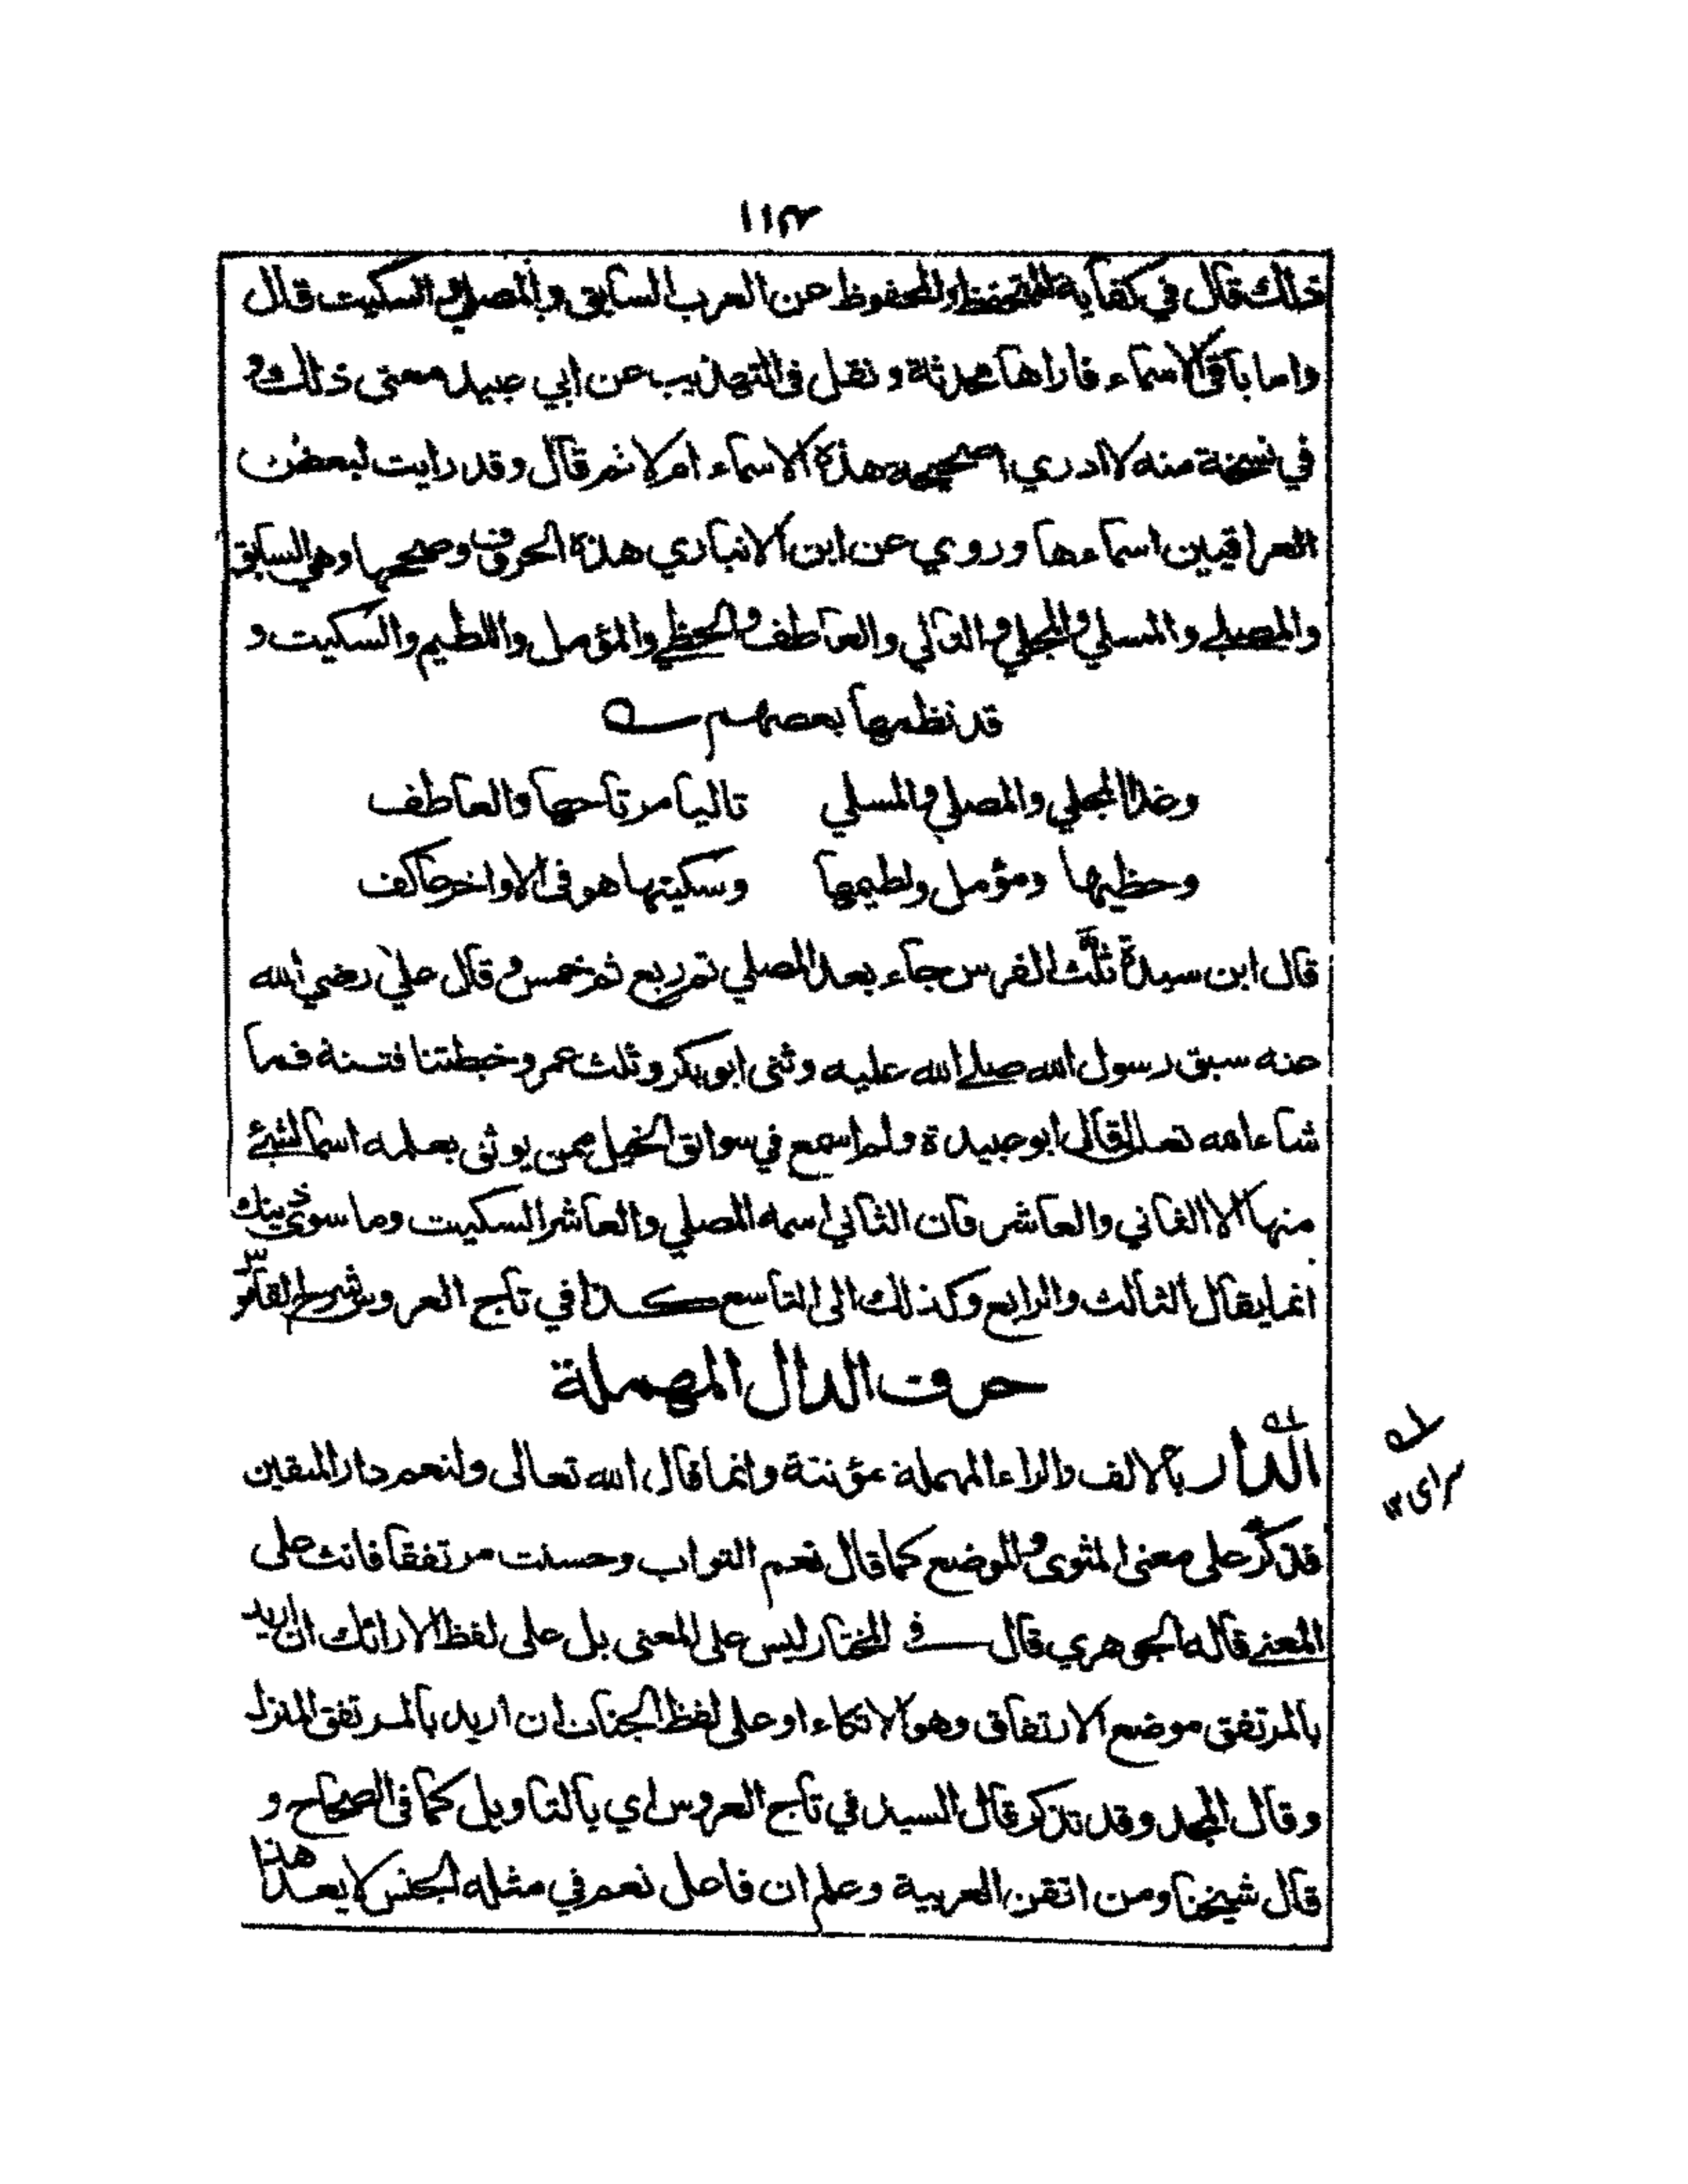 ١١٣
ذلك قال في كفاية المتحفظ والمحفوظ عن العرب السابق والمصلي والسكيت قال
واما باقى الاسماء فاراها محدثة و نقل فى التهذيب عن ابي عبيد معنى ذلك و
في نسخة منه لا ادري اصحيحة هذه الاسماء ام لا ثم قال وقد رايت لبعض
العراقيين اسماءها وروي عن ابن الانباري هذه الحروف وصححها وهي السابق
والمصلي والمسلي والمجلي والتالي والعاطف والحظي والمؤمل واللطيم والسكيت و
قد نظمها بعضهم
وغدا المجلي والمصلي والمسلي تاليا مرتاحها والعاطف
وحظيها ومؤمل ولطيمها وسكيتها هو فى الاواخر عاكف
قال ابن سيدة ثلث الفرس جاء بعد المصلي ثم ربع ثم خمس وقال علي رضي الله
عنه سبق رسول الله صلى الله عليه وثنى ابو بكر وثلث عمر وخبطتنا فتنة فما
شاء الله تعالى قال ابو عبيدة ولم اسمع في سوابق الخيل ممن يوثق بعلمه اسما لشئ
منها الا الثاني والعاشر فان الثاني اسمه المصلي والعاشر السكيت وما سوى ذينك
انما يقال الثالث والرابع وكذلك الى التاسع كذا في تاج العروس شرح القاموس
حرف الدال المهملة
الدار بالالف والراء المهملة مؤنثة وانما قال الله تعالى ولنعم دار المتقين
فذكر على معنى المثوى والموضع كما قال نعم الثواب وحسنت مرتفقا فانث على
المعنى قاله الجوهري قال في المختار ليس على المعنى بل على لفظ الارائك ان اريد
بالمرتفق موضع الارتفاق وهو الاتكاء او على لفظ الجنات ان اريد بالمرتفق المنزل
وقال المجد وقد تذكر قال السيد في تاج العروس اي بالتاويل كما فى الصحاح و
قال شيخنا ومن اتقن العربية وعلم ان فاعل نعم في مثله الجنس لا يعد هذا
سراى ١٢